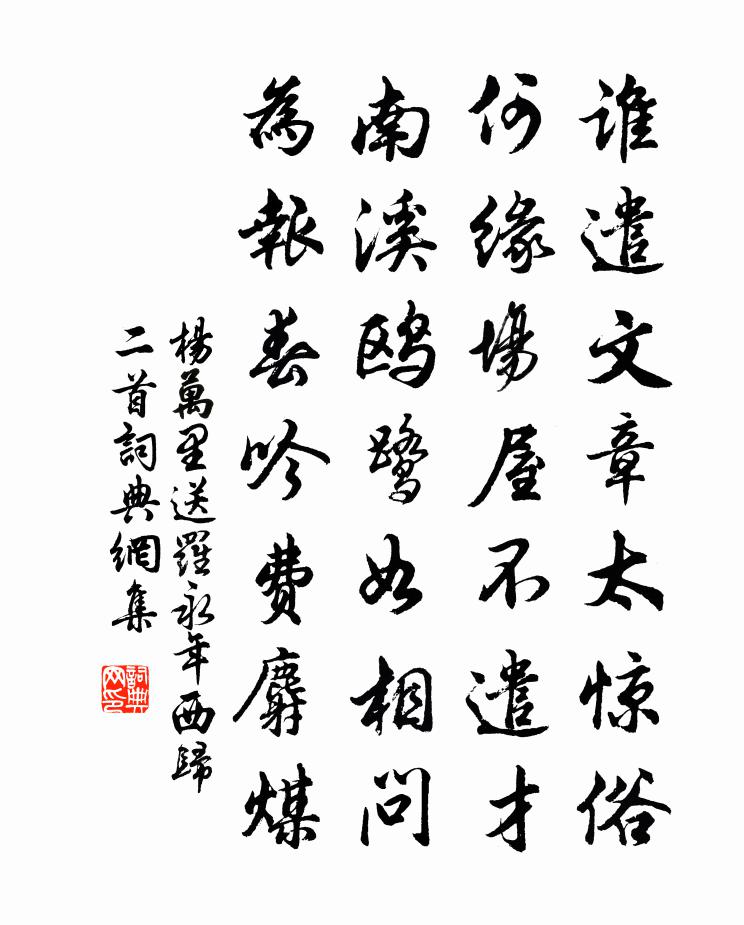 誰遣文章太惊俗
何緣場屋不遣才
南溪鷗鷺如相問
為報春吟費麝煤
楊萬里送羅永年西歸
二首詞典網集
詞典网印